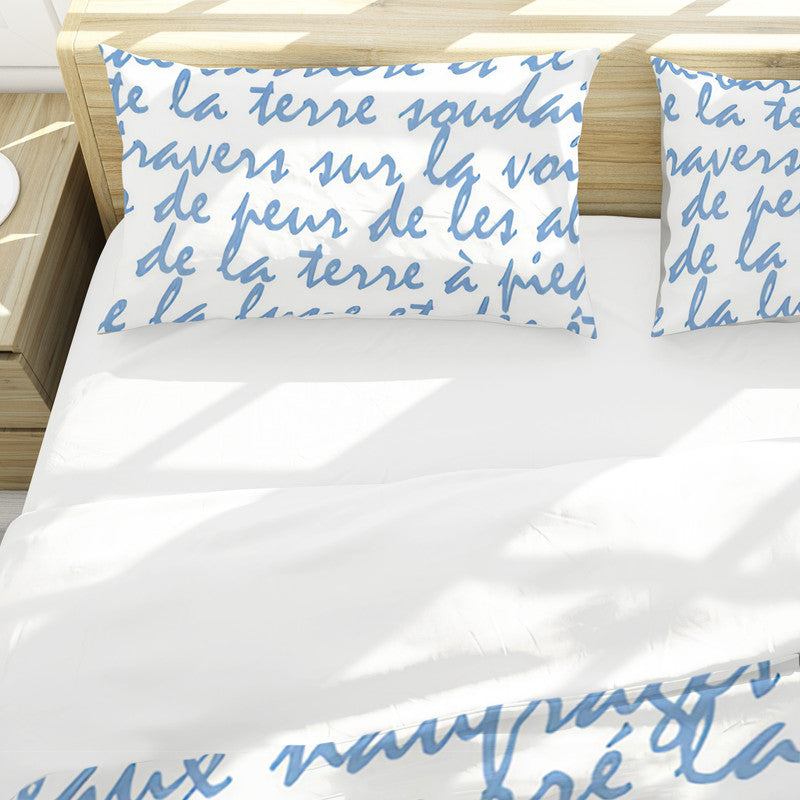 et le
te la terre soudai
travers sur la voi
de peur de les ab
de la terre à pied
la lune et
la te
ravers
de pe
de la
e la lu
eaux naufragés
la